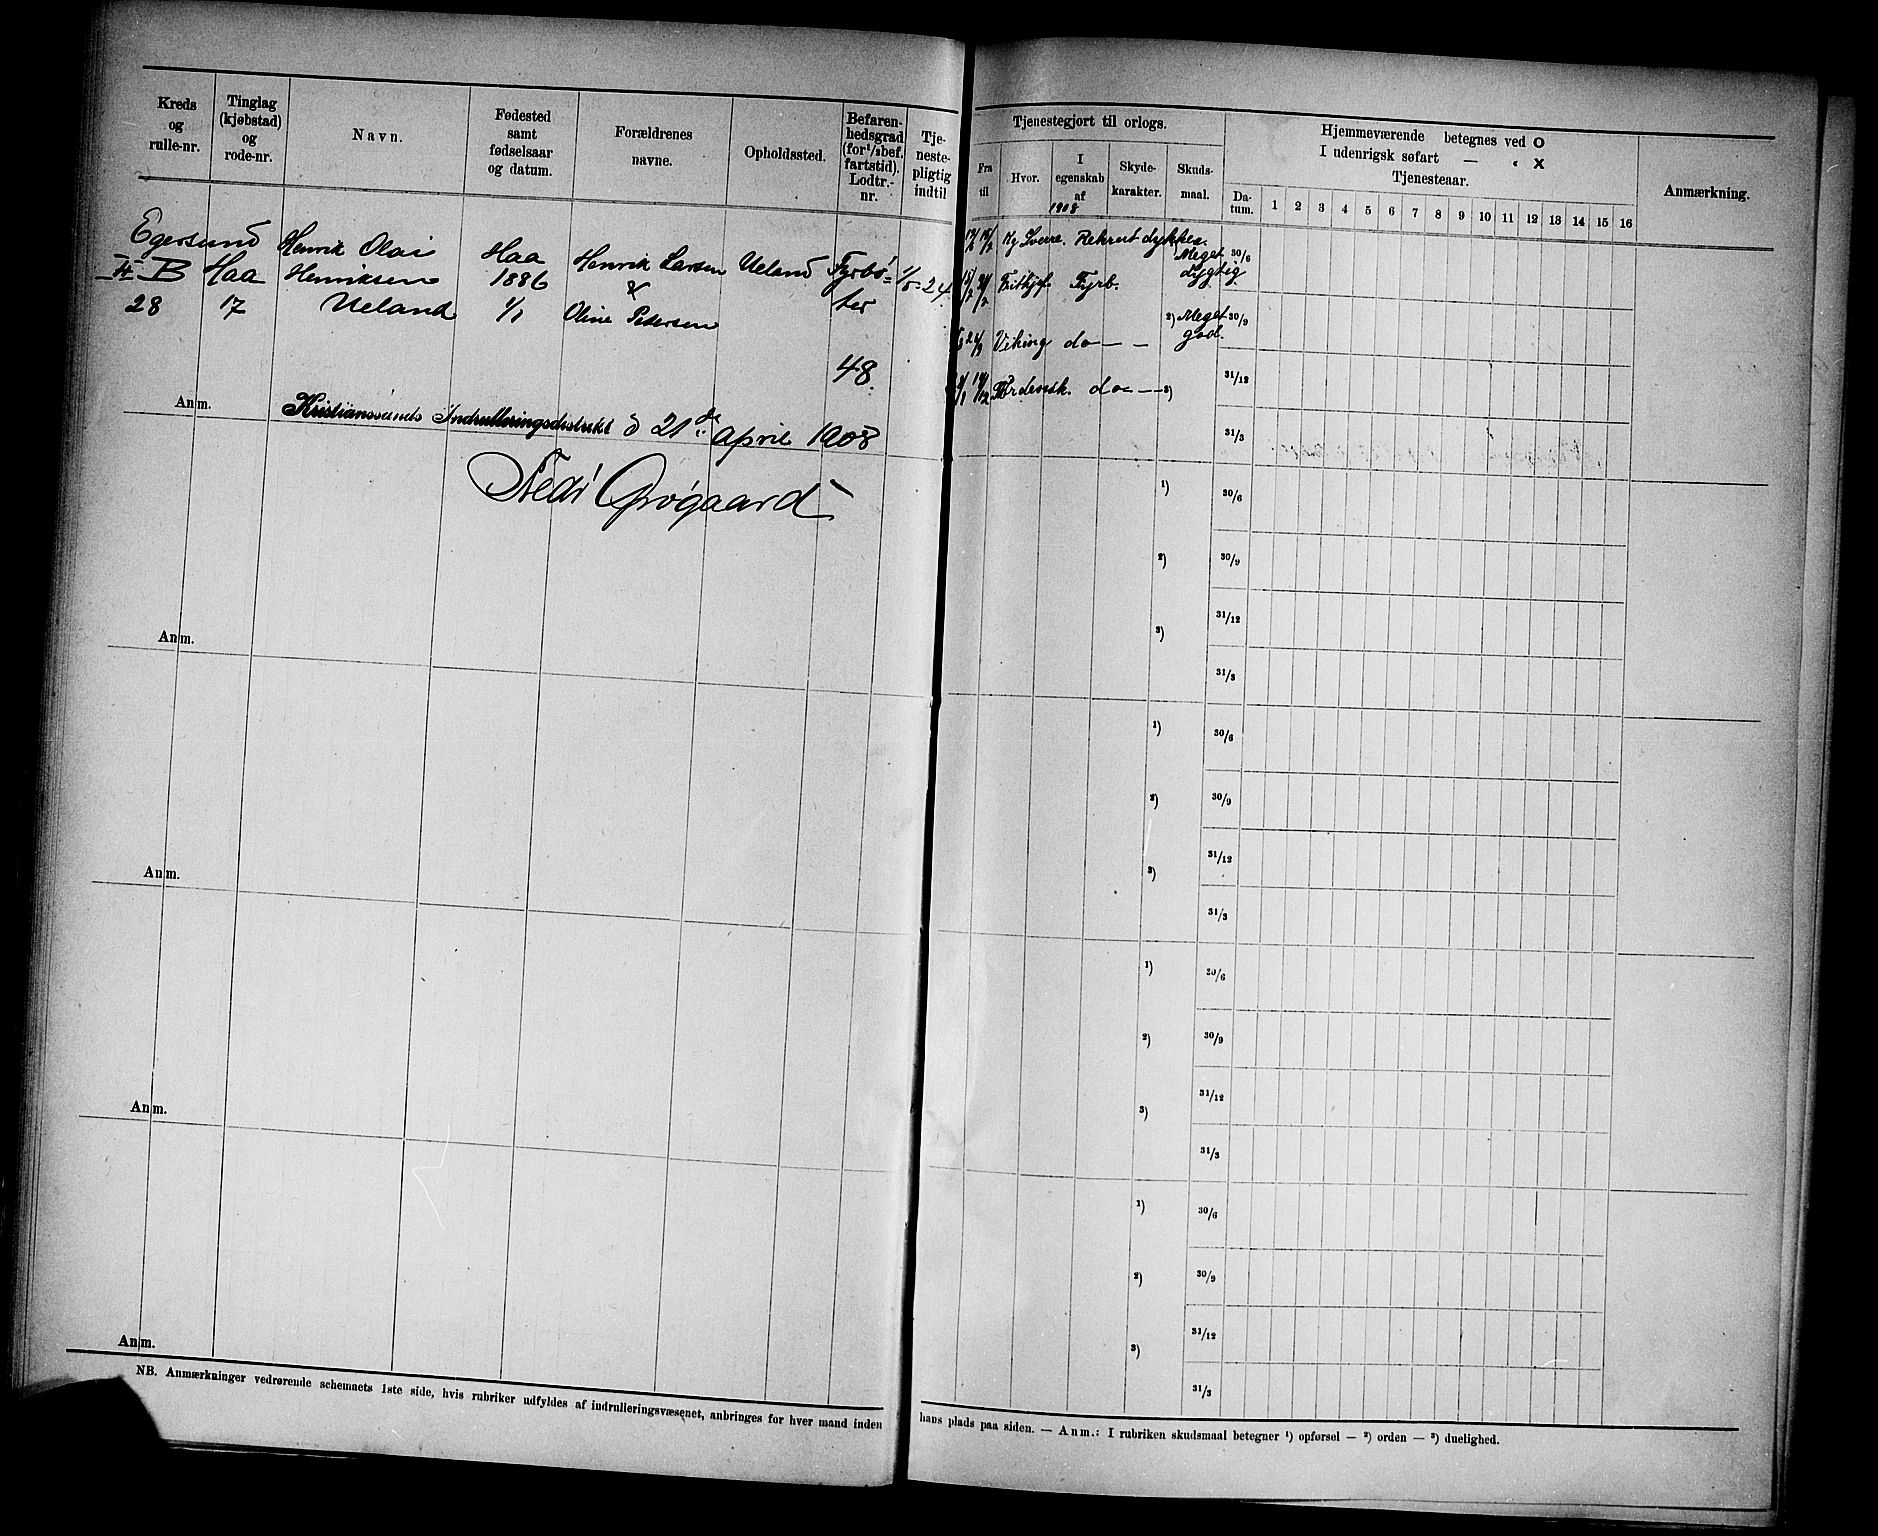 Kreds og rulle-nr.
Tinglag (kjøbstad) og rode-nr.
Navn.
Fødested samt fødselsaar og datum.
Forældrenes navne.
Opholdssted.
Befaren-hedsgrad (for ½ bef. fartstid). Lodtr.-nr.
Tje-neste-pligtig indtil
Tjenestegjort til orlogs.
Fra til
Hvor.
I egenskab af
1908
Skyde-karakter.
Skuds-maal.
Hjemmeværende betegnes ved O
I udenrigsk søfart — " X
Tjenesteaar.
Da-tum. 1 2 3 4 5 6 7 8 9 10 11 12 13 14 15 16
Anmærkning.
Egersund Henrik Olai Haa Henrik Larsen Ueland Fyrbø-
B Haa Henriksen 1886 & ter
28 17 Ueland 1/1 Oline Petersen
48.
Rekrut dykkes.
Meget dygtig.
Fritkjof Fyrb.
2) Meget god.
Viking do — —
do — 3)
30/6
30/9
31/12
31/3
Anm.
Kristianssunds Indrulleringsdistrikt d 21de April 1908
Grøgaard
1)
30/6
2)
30/9
3)
31/12
31/3
Anm.
1)
30/6
2)
30/9
3)
31/12
31/3
Anm.
1)
30/6
2)
30/9
3)
31/12
31/3
Anm.
1)
30/6
2)
30/9
3)
31/12
31/3
Anm.
NB. Anmærkninger vedrørende schemaets 1ste side, hvis rubriker udfyldes af indrulleringsvæsenet, anbringes for hver mand inden hans plads paa siden. — Anm.: I rubriken skudsmaal betegner ¹) opførsel — ²) orden — ³) duelighed.